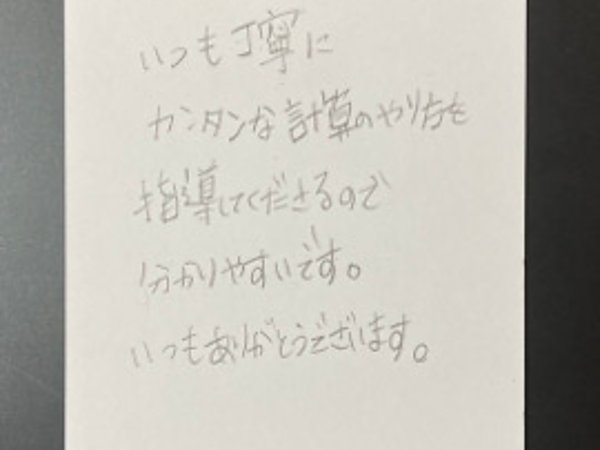 いつも丁寧に
カンタンな計算のやり方を
指導してくださるので
分かりやすいです。
いつもありがとうございます。